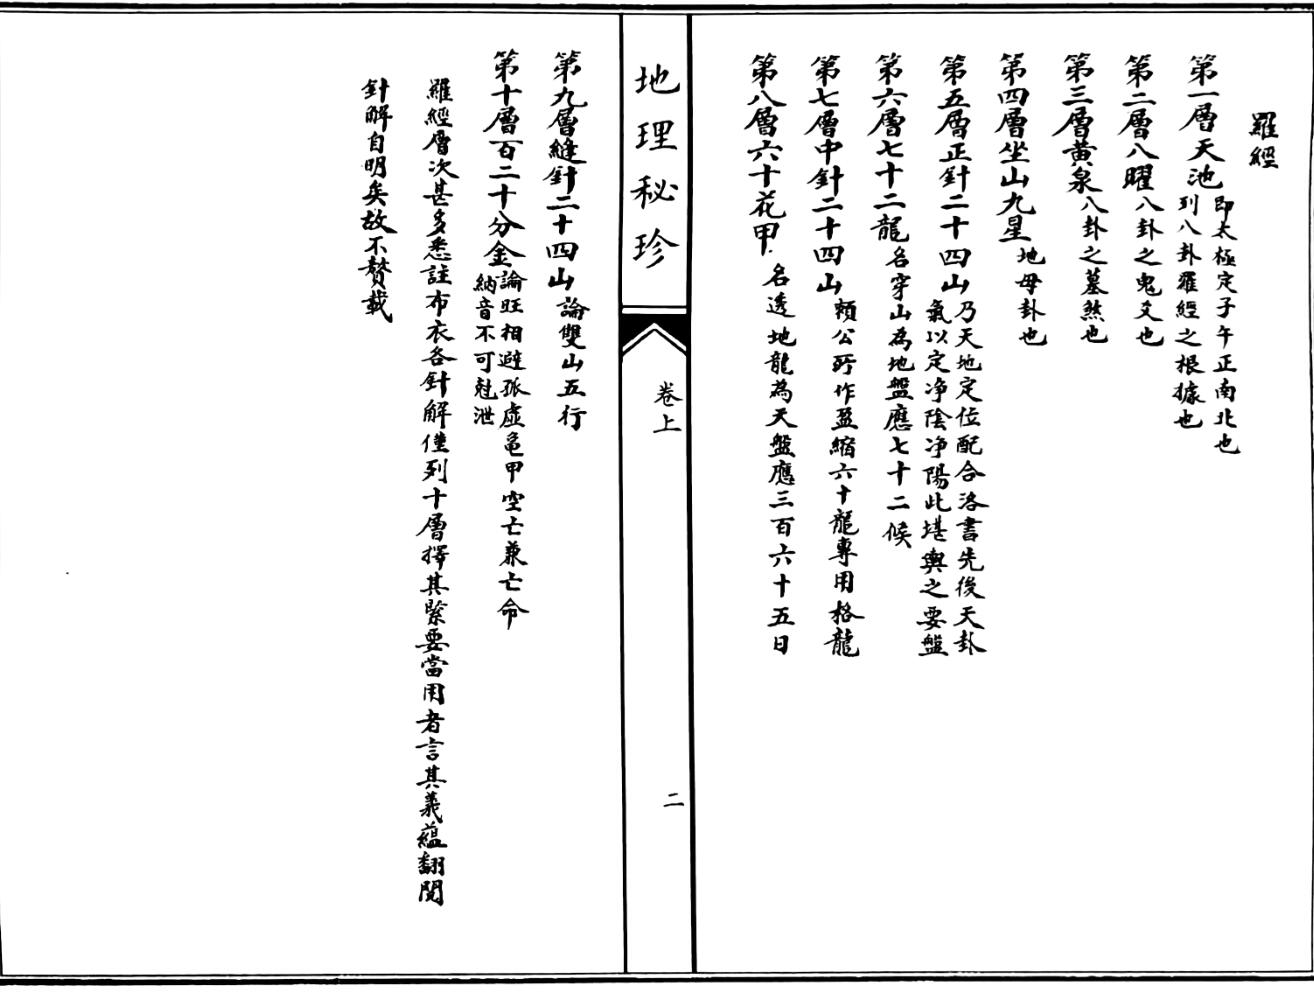 羅經
第一層天池 即太極定子午正南北也
列八卦羅經之根據也
第二層八曜 八卦之鬼爻也
第三層黃泉 八卦之墓煞也
第四層坐山九星 地母卦也
第五層正針二十四山 乃天地定位配合洛書先後天卦
氣以定净陰净陽此堪輿之要盤
第六層七十二龍 名穿山為地盤應七十二候
第七層中針二十四山 賴公所作盈縮六十龍專用格龍
第八層六十花甲 名透地龍為天盤應三百六十五日
地理秘珍
卷上
二
第九層縫針二十四山 論雙山五行
第十層百二十分金 論旺相避孤虛龜甲空亡兼亡命
納音不可尅泄
羅經層次甚多悉註布衣各針解僅列十層擇其緊要當用者言其義蘊翻閱
針解自明矣故不贅載